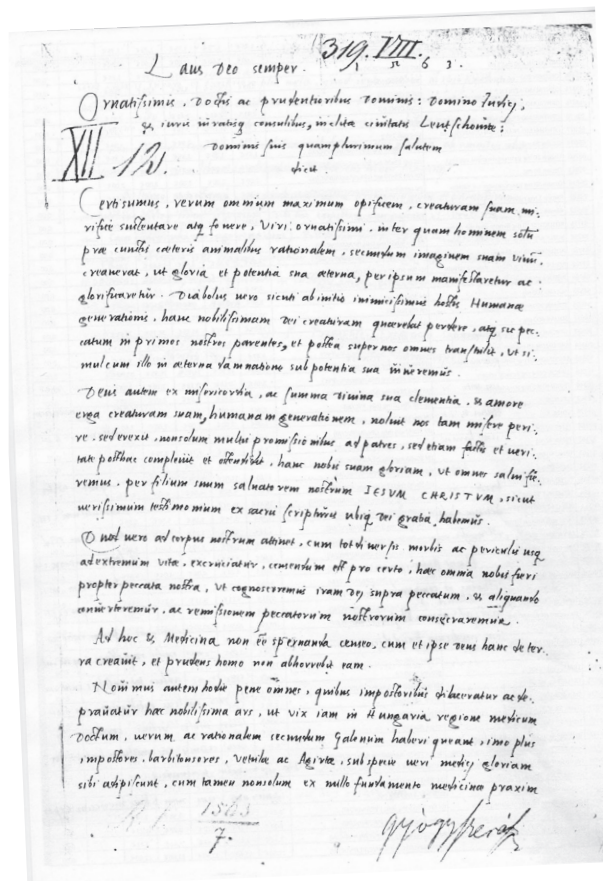 319. VIII.
Laus Deo semper. 1 5 6 3.
Ornatissimis, Doctis ac prudentioribus Dominis: Domino Iudici,
& iuratisq consulibus, inclitae civitatis Leutschoviae:
XII 12. Dominis suis quamplurimum salutem
dicit.
Certissimus, verum omnium maximum opificem, creaturam suam mi-
rifice sustentare atq fovere, Viri ornatissimi, inter quam hominem solu
prae cunctis caeteris animalibus rationalem, secundum imaginem suam vivu
creaverat, ut gloria et potentia sua aeterna, per ipsum manifestaretur ac
glorificaretur. Diabolus vero sicuti ab initio inimicissimus hostis Humanae
generationis, hanc nobilissimam Dei creaturam quaerebat perdere, atq sic pec-
catum in primos nostros parentes, et postea super nos omnes transtulit, ut si-
mul cum illo in aeterna damnatione sub potentia sua
Deus autem ex misericordia, ac summa divina sua clementia, & amore
erga creaturam suam, humanam generationem, noluit nos tam misere peri-
re, sed erexit, non solum multis promissionibus ad patres, sed etiam factis et veri-
tate posthac complevit et ostendit, hanc nobis suam gloriam, ut omnes salvi fie-
remus, per filium suum salvatorem nostrum IESUM CHRISTUM, sicut
verissimum testimonium ex sacris scripturis ubiq Dei gratia habemus.
Quod vero ad corpus nostrum attinet, cum tot diversis morbis ac periculis usq
ad extremum vitae, excruciatur, censendum est pro certo, haec omnia nobis fieri
propter peccata nostra, ut cognosceremus iram Dei supra peccatum, & aliquando
converteremur, ac remissionem peccatorum nostrorum consequeremur.
Ad hoc & Medicina non esse spernanda censeo, cum et ipse Deus hanc de ter-
ra creavit, et prudens homo non abhorrebit eam.
Novimus autem hodie pene omnes, quibus impostoribus dilaceratur ac de-
pravatur haec nobilissima ars, ut vix iam in Hungaria regione medicum
Doctum, verum ac rationalem secundum Galenum haberi queant, imo plus
impostores, barbitonsores, vetulae ac Agirtae, sub specie veri medici gloriam
sibi adipiscunt, cum tamen non solum ex nullo fundamento medicinae praxim
1563
7.